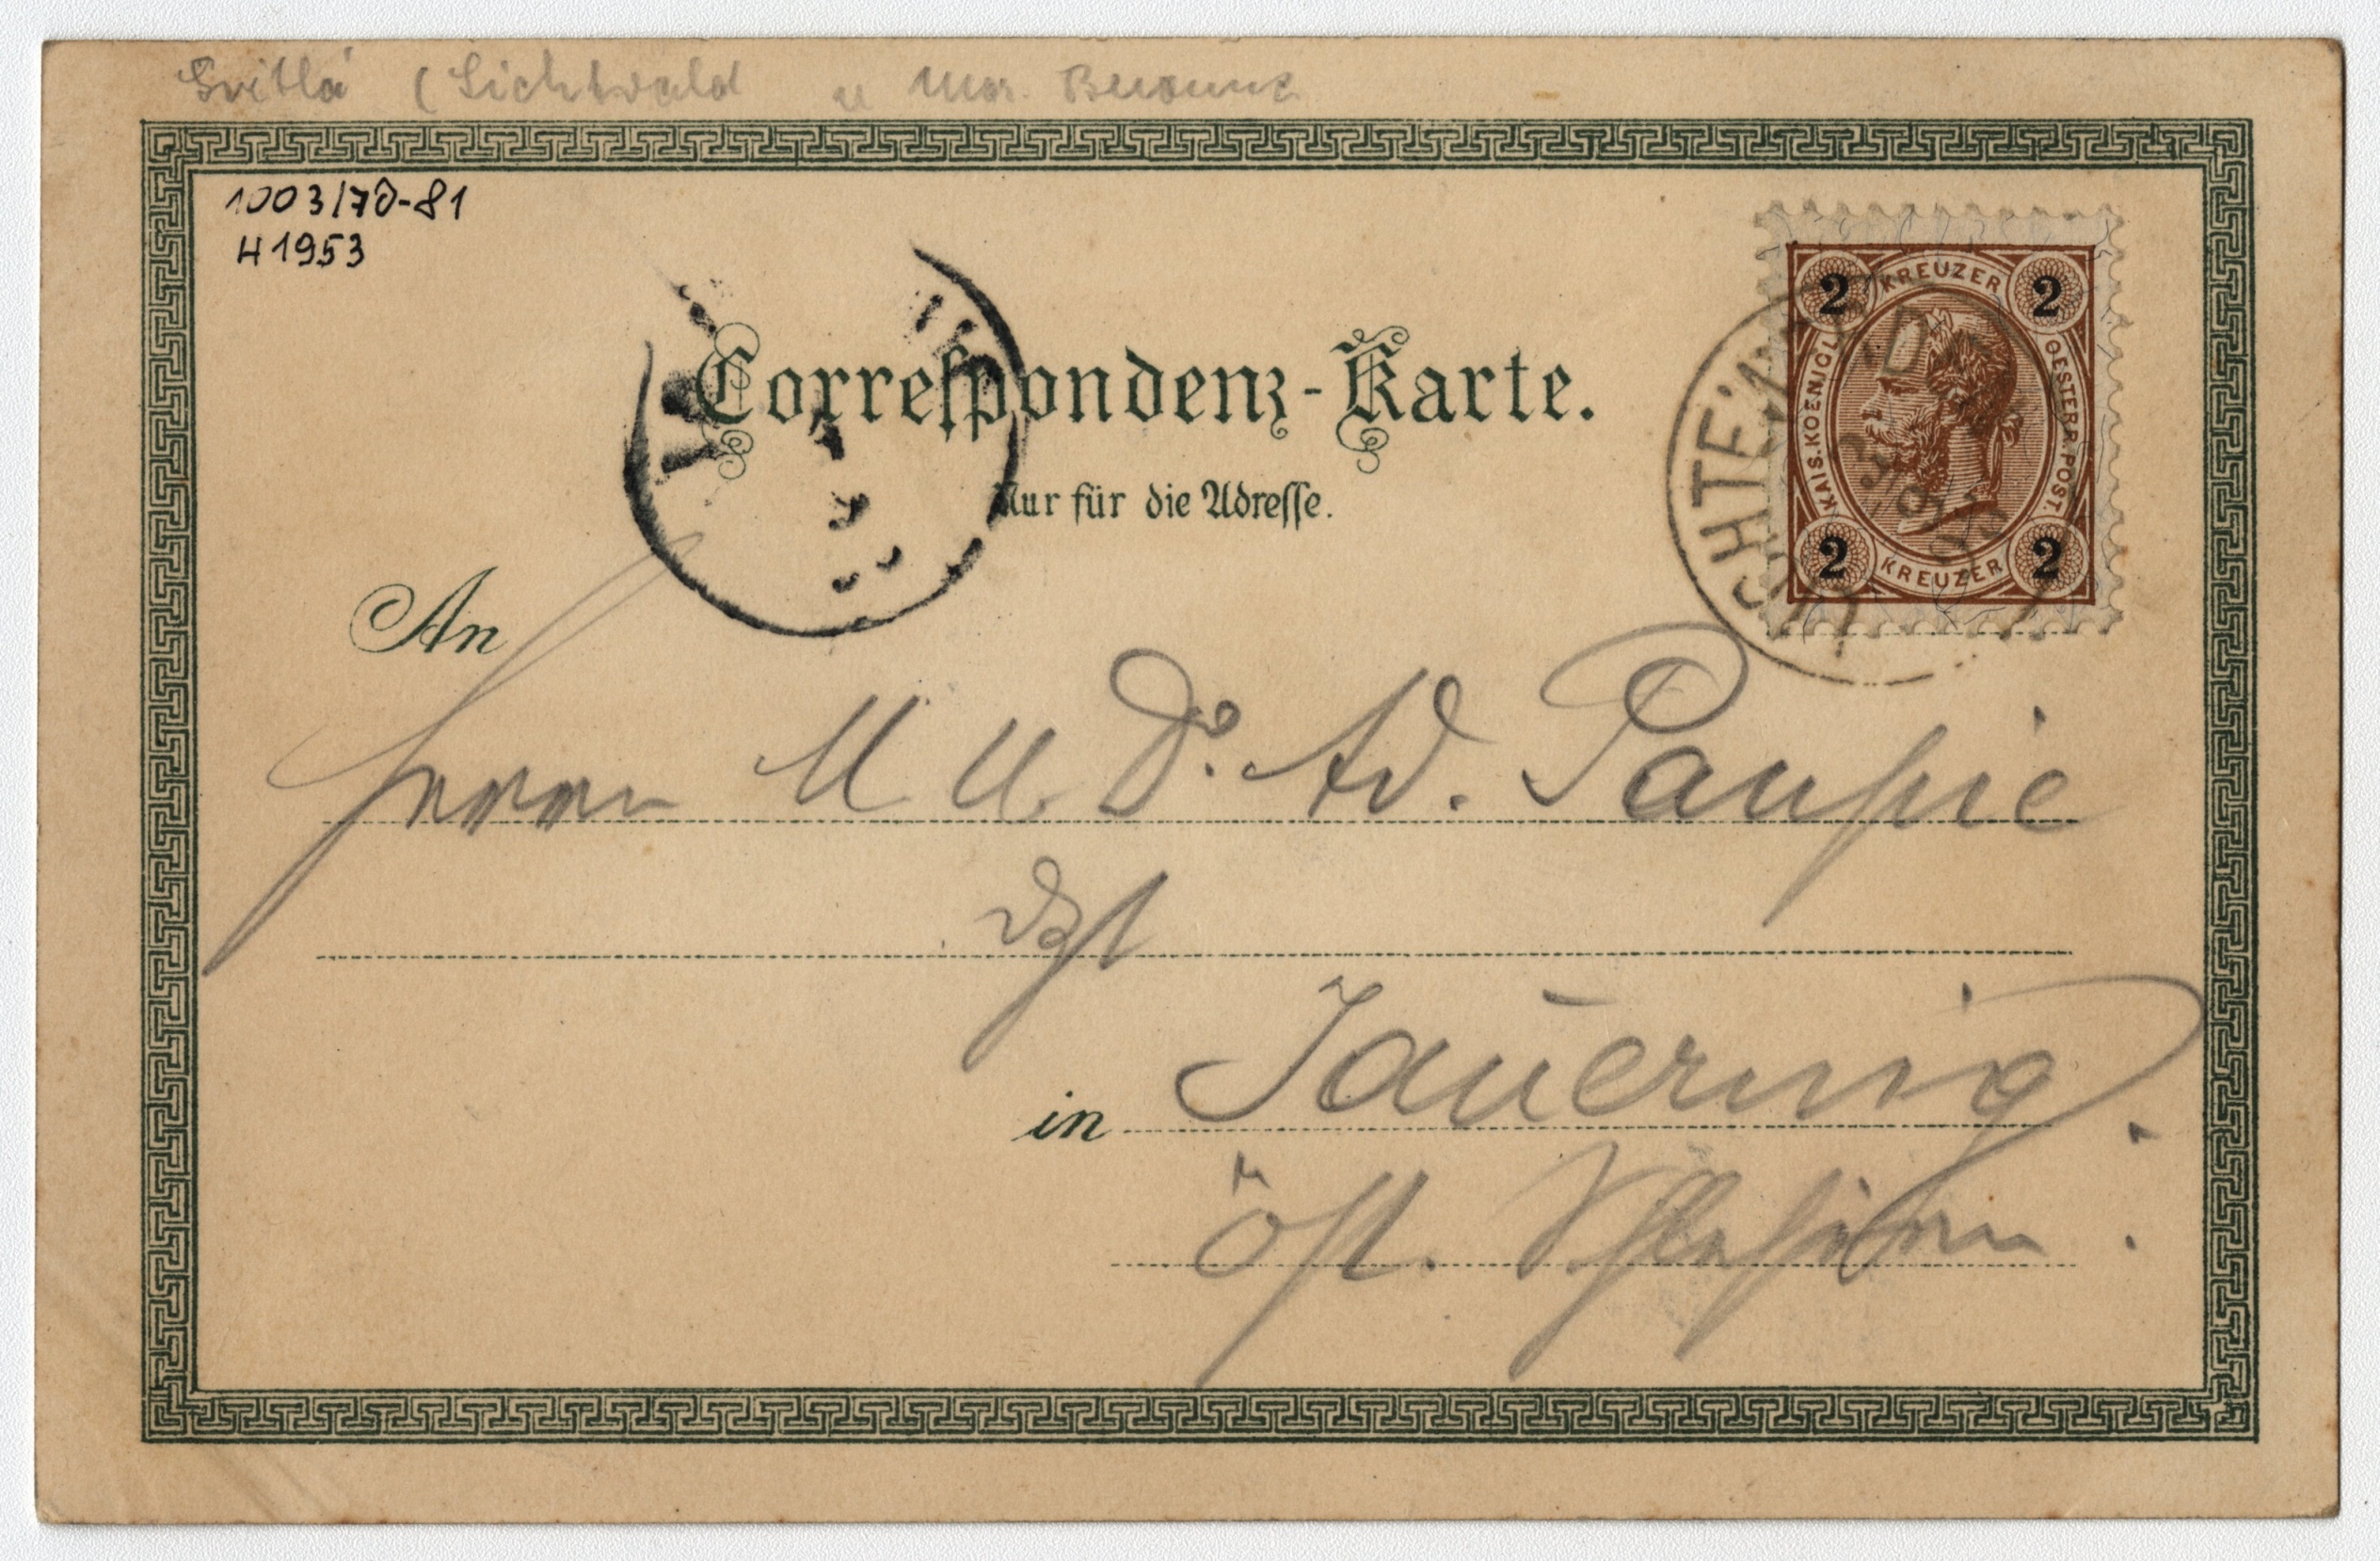 Svitlá (Lichtwald u Mor. Berouna
1003/70-81
H 1953
Correſpondenz-Karte.
Nur für die Adreſſe.
2 KREUZER 2
KAIS. KOENIGL. OESTERR. POST.
2 KREUZER 2
An
Herrn M U Dr. Ad. Paupie
dzt
in Jauernig.
öst. Schlesien.